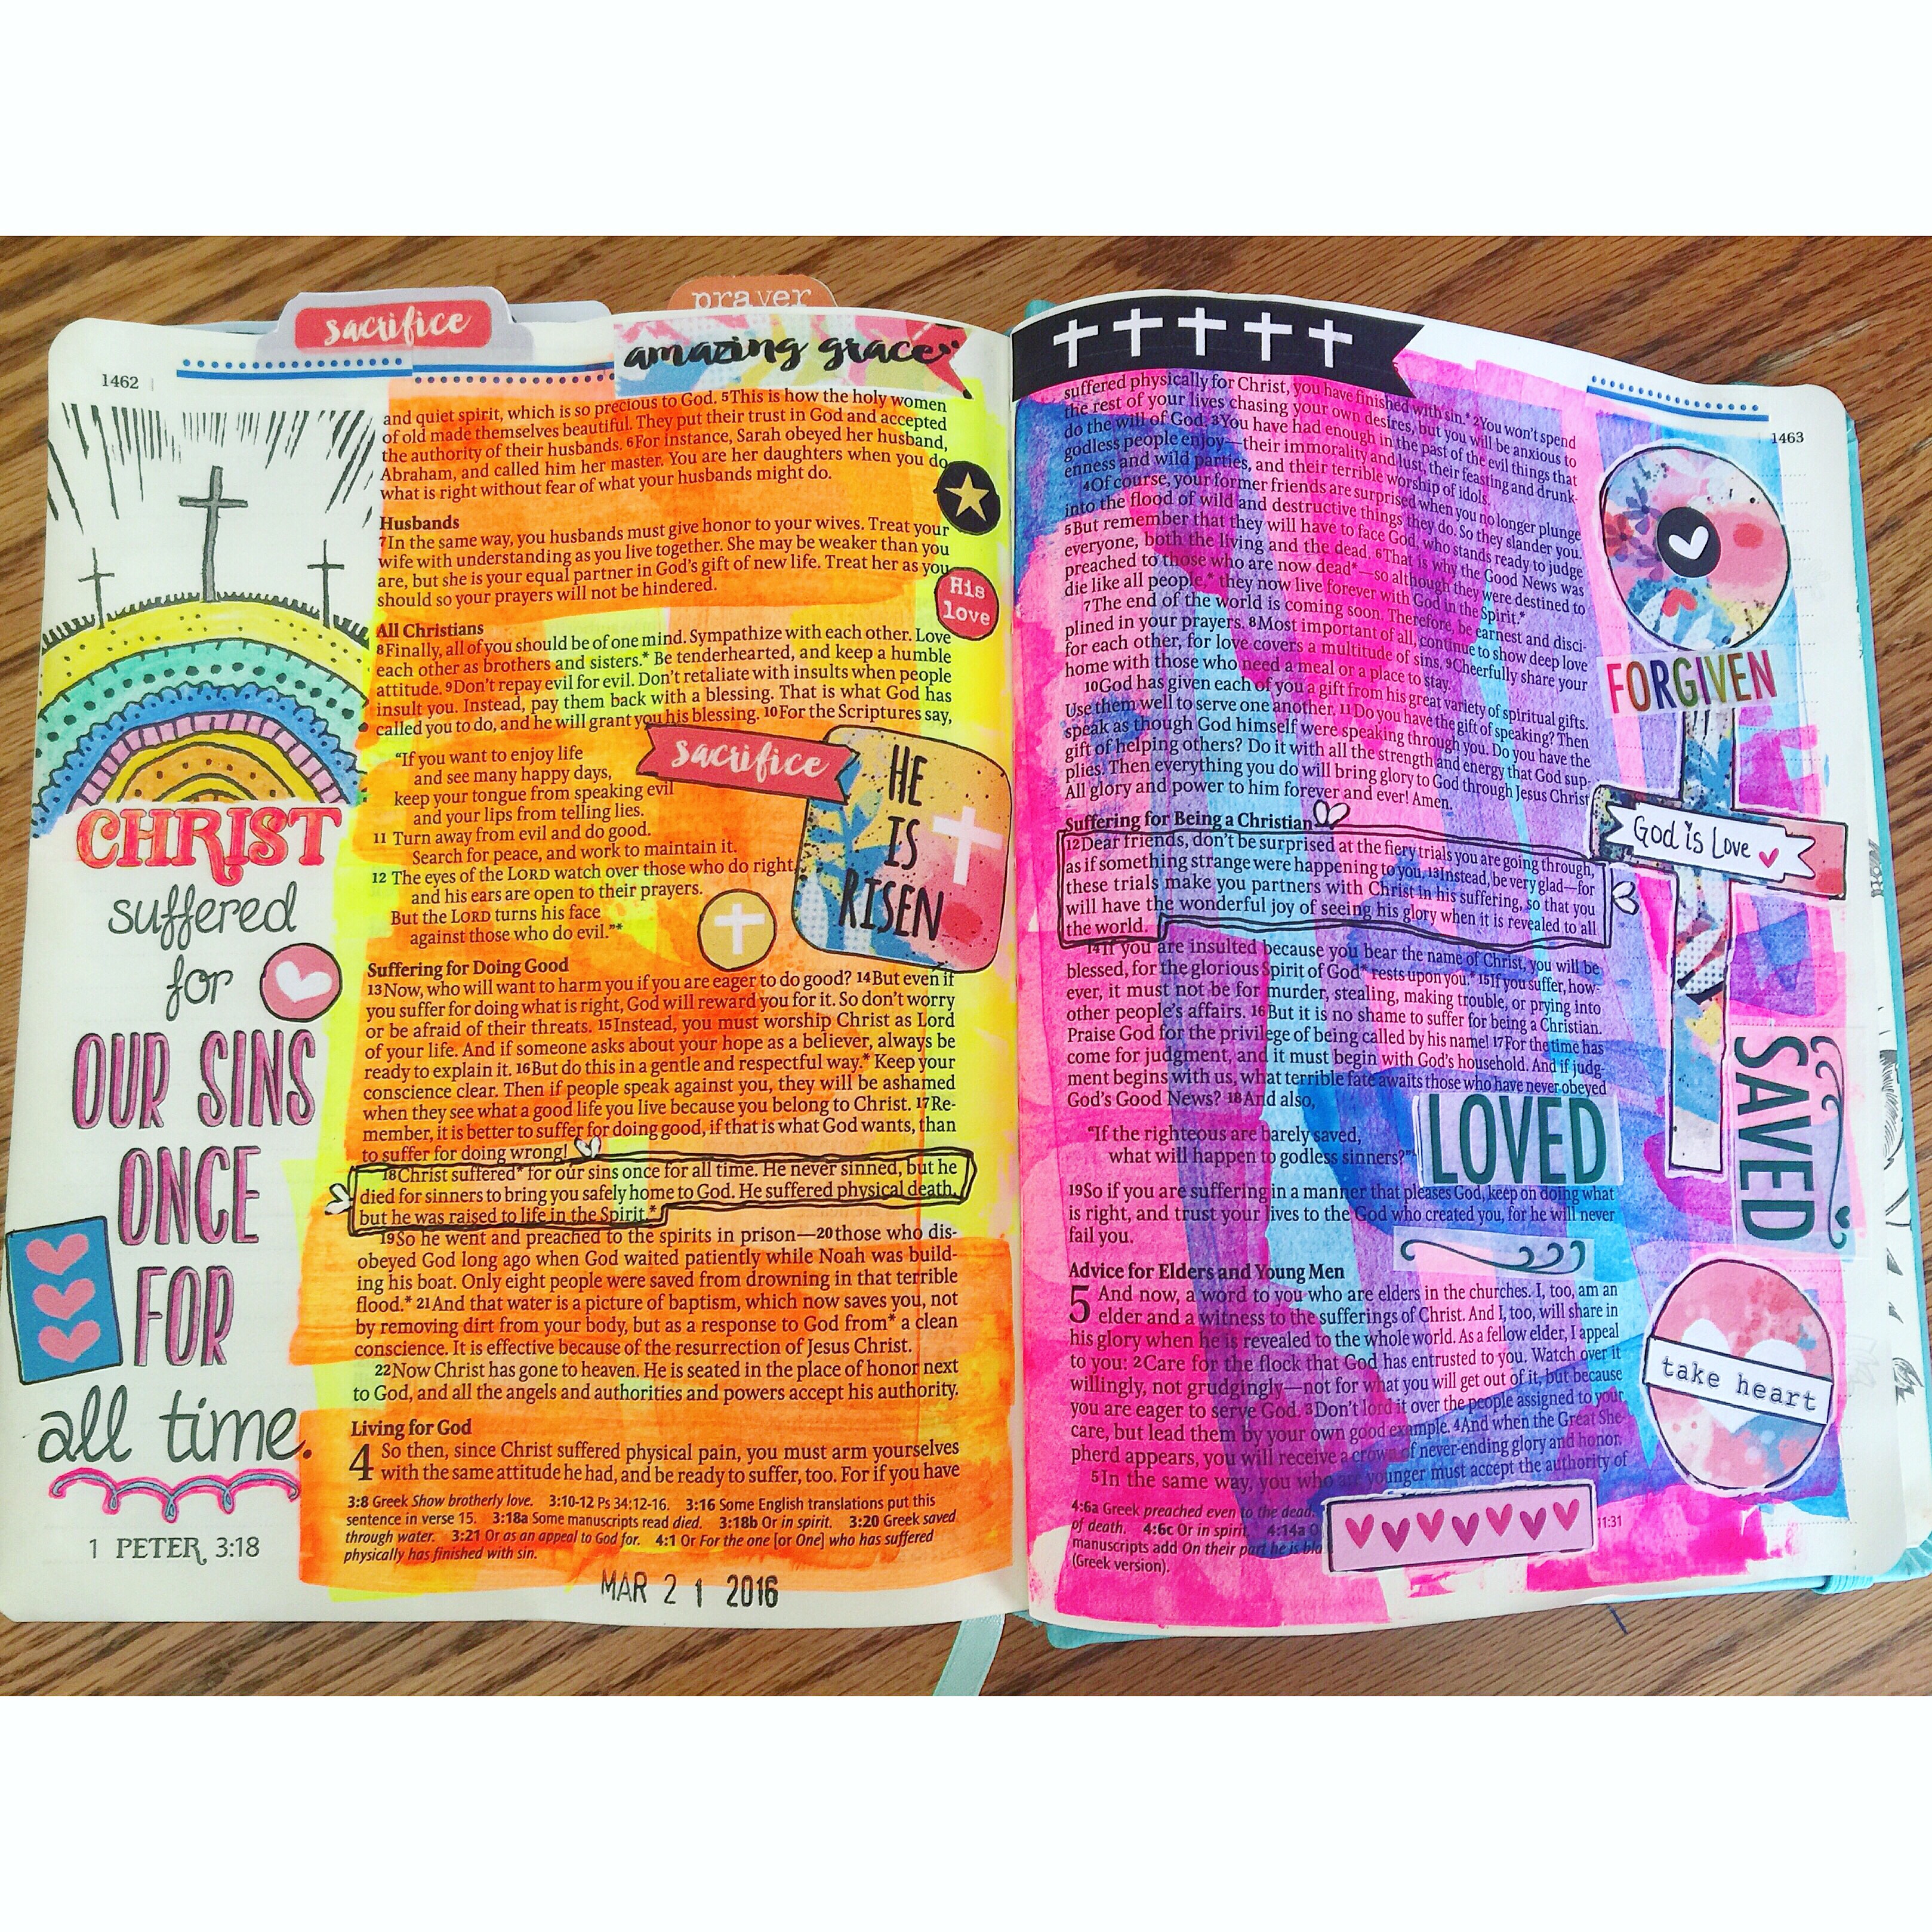 sacrifice
prayer
amazing grace
1462
and quiet spirit, which is so precious to God. 5This is how the holy women
of old made themselves beautiful. They put their trust in God and accepted
the authority of their husbands. 6For instance, Sarah obeyed her husband,
Abraham, and called him her master. You are her daughters when you do
what is right without fear of what your husbands might do.
Husbands
7In the same way, you husbands must give honor to your wives. Treat your
wife with understanding as you live together. She may be weaker than you
are, but she is your equal partner in God's gift of new life. Treat her as you
should so your prayers will not be hindered.
His
love
All Christians
8Finally, all of you should be of one mind. Sympathize with each other. Love
each other as brothers and sisters.* Be tenderhearted, and keep a humble
attitude. 9Don't repay evil for evil. Don't retaliate with insults when people
insult you. Instead, pay them back with a blessing. That is what God has
called you to do, and he will grant you his blessing. 10For the Scriptures say,
"If you want to enjoy life
and see many happy days,
keep your tongue from speaking evil
and your lips from telling lies.
11 Turn away from evil and do good.
Search for peace, and work to maintain it.
12 The eyes of the LORD watch over those who do right,
and his ears are open to their prayers.
But the LORD turns his face
against those who do evil."*
sacrifice
HE
IS
RISEN
Suffering for Doing Good
13Now, who will want to harm you if you are eager to do good? 14But even if
you suffer for doing what is right, God will reward you for it. So don't worry
or be afraid of their threats. 15Instead, you must worship Christ as Lord
of your life. And if someone asks about your hope as a believer, always be
ready to explain it. 16But do this in a gentle and respectful way.* Keep your
conscience clear. Then if people speak against you, they will be ashamed
when they see what a good life you live because you belong to Christ. 17Re-
member, it is better to suffer for doing good, if that is what God wants, than
to suffer for doing wrong!
18Christ suffered* for our sins once for all time. He never sinned, but he
died for sinners to bring you safely home to God. He suffered physical death,
but he was raised to life in the Spirit.*
19So he went and preached to the spirits in prison—20those who dis-
obeyed God long ago when God waited patiently while Noah was build-
ing his boat. Only eight people were saved from drowning in that terrible
flood.* 21And that water is a picture of baptism, which now saves you, not
by removing dirt from your body, but as a response to God from* a clean
conscience. It is effective because of the resurrection of Jesus Christ.
22Now Christ has gone to heaven. He is seated in the place of honor next
to God, and all the angels and authorities and powers accept his authority.
Living for God
4 So then, since Christ suffered physical pain, you must arm yourselves
with the same attitude he had, and be ready to suffer, too. For if you have
3:8 Greek Show brotherly love. 3:10-12 Ps 34:12-16. 3:16 Some English translations put this
sentence in verse 15. 3:18a Some manuscripts read died. 3:18b Or in spirit. 3:20 Greek saved
through water. 3:21 Or as an appeal to God for. 4:1 Or For the one [or One] who has suffered
physically has finished with sin.
MAR 2 1 2016
CHRIST
suffered
for
OUR SINS
ONCE
FOR
all time.
1 PETER 3:18
1463
suffered physically for Christ, you have finished with sin.* 2You won't spend
the rest of your lives chasing your own desires, but you will be anxious to
do the will of God. 3You have had enough in the past of the evil things that
godless people enjoy—their immorality and lust, their feasting and drunk-
enness and wild parties, and their terrible worship of idols.
4Of course, your former friends are surprised when you no longer plunge
into the flood of wild and destructive things they do. So they slander you.
5But remember that they will have to face God, who stands ready to judge
everyone, both the living and the dead. 6That is why the Good News was
preached to those who are now dead*—so although they were destined to
die like all people,* they now live forever with God in the Spirit.*
7The end of the world is coming soon. Therefore, be earnest and disci-
plined in your prayers. 8Most important of all, continue to show deep love
for each other, for love covers a multitude of sins. 9Cheerfully share your
home with those who need a meal or a place to stay.
10God has given each of you a gift from his great variety of spiritual gifts.
Use them well to serve one another. 11Do you have the gift of speaking? Then
speak as though God himself were speaking through you. Do you have the
gift of helping others? Do it with all the strength and energy that God sup-
plies. Then everything you do will bring glory to God through Jesus Christ
All glory and power to him forever and ever! Amen.
Suffering for Being a Christian
12Dear friends, don't be surprised at the fiery trials you are going through,
as if something strange were happening to you. 13Instead, be very glad—for
these trials make you partners with Christ in his suffering, so that you
will have the wonderful joy of seeing his glory when it is revealed to all
the world.
14If you are insulted because you bear the name of Christ, you will be
blessed, for the glorious Spirit of God* rests upon you.* 15If you suffer, how-
ever, it must not be for murder, stealing, making trouble, or prying into
other people's affairs. 16But it is no shame to suffer for being a Christian.
Praise God for the privilege of being called by his name! 17For the time has
come for judgment, and it must begin with God's household. And if judg-
ment begins with us, what terrible fate awaits those who have never obeyed
God's Good News? 18And also,
"If the righteous are barely saved,
what will happen to godless sinners?"
LOVED
19So if you are suffering in a manner that pleases God, keep on doing what
is right, and trust your lives to the God who created you, for he will never
fail you.
Advice for Elders and Young Men
5 And now, a word to you who are elders in the churches. I, too, am an
elder and a witness to the sufferings of Christ. And I, too, will share in
his glory when he is revealed to the whole world. As a fellow elder, I appeal
to you: 2Care for the flock that God has entrusted to you. Watch over it
willingly, not grudgingly—not for what you will get out of it, but because
you are eager to serve God. 3Don't lord it over the people assigned to your
care, but lead them by your own good example. 4And when the Great She-
pherd appears, you will receive a crown of never-ending glory and honor.
5In the same way, you who are younger must accept the authority of
4:6a Greek preached even to the dead.
of death. 4:6c Or in spirit. 4:14a O
manuscripts add On their part he is bla
(Greek version).
11:31
FORGIVEN
God is Love
SAVED
take heart